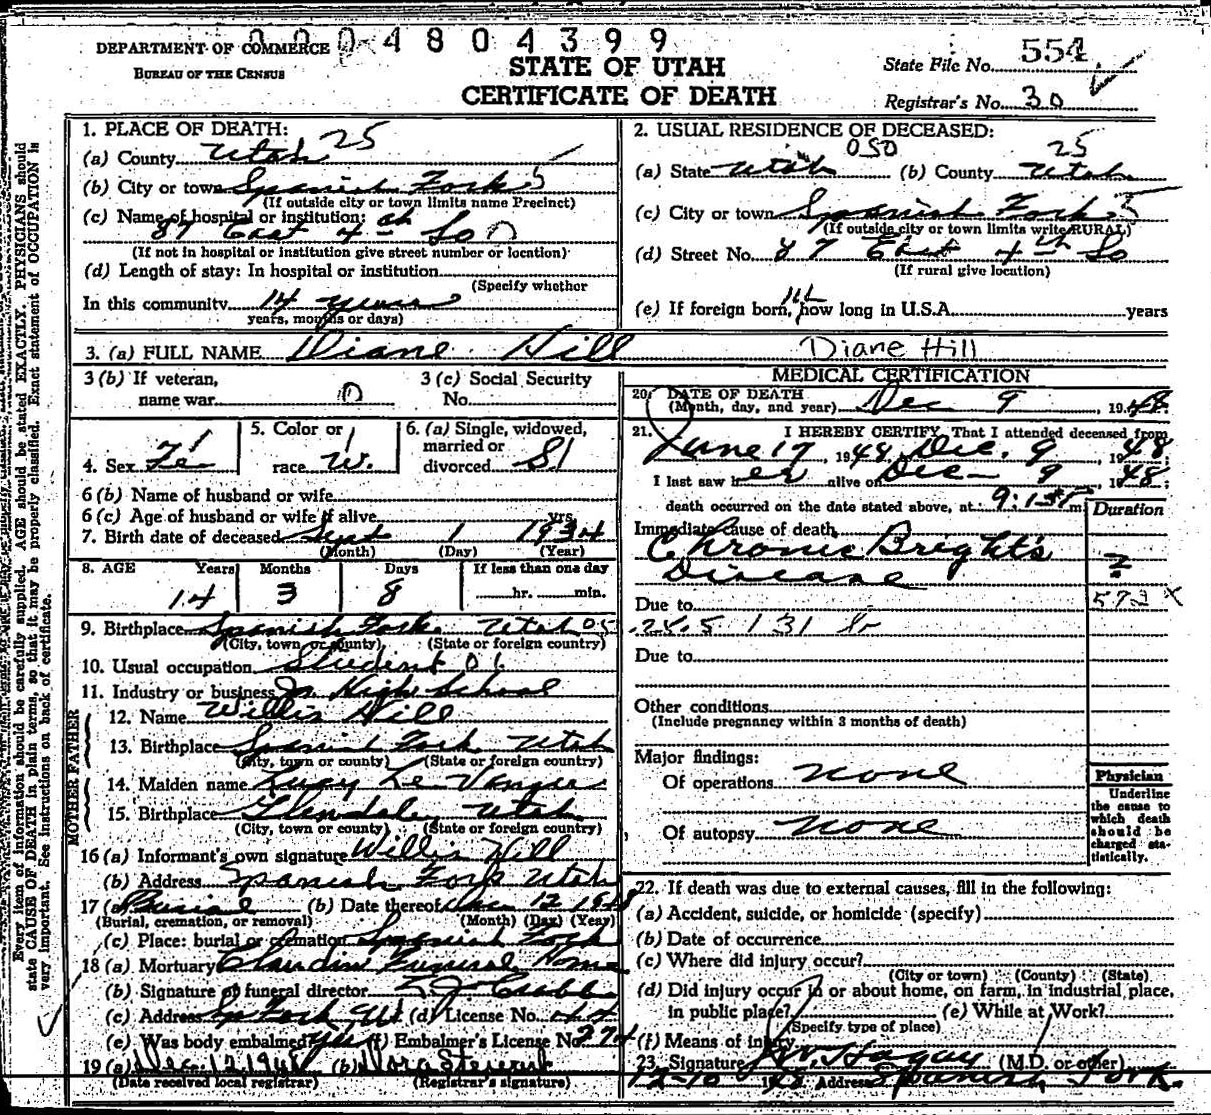 0004804399
DEPARTMENT OF COMMERCE
BUREAU OF THE CENSUS
STATE OF UTAH
CERTIFICATE OF DEATH
State File No. 554
Registrar's No. 30
Every item of information should be carefully supplied. AGE should be stated EXACTLY. PHYSICIANS should
state CAUSE OF DEATH in plain terms, so that it may be properly classified. Exact statement of OCCUPATION is
very important. See instructions on back of certificate.
1. PLACE OF DEATH: 25
(a) County Utah
(b) City or town Spanish Fork 5
(If outside city or town limits name Precinct)
(c) Name of hospital or institution:
87 East 4th So
(If not in hospital or institution give street number or location)
(d) Length of stay: In hospital or institution
(Specify whether
In this community 14 years
years, months or days)
2. USUAL RESIDENCE OF DECEASED:
050 25
(a) State Utah (b) County Utah
(c) City or town Spanish Fork 5
(If outside city or town limits write RURAL)
(d) Street No. 87 East 4th So
(If rural give location)
(e) If foreign born, how long in U.S.A. years
3. (a) FULL NAME Diane Hill Diane Hill
3 (b) If veteran,
name war 0
3 (c) Social Security
No.
4. Sex Fe
5. Color or
race W.
6. (a) Single, widowed,
married or
divorced S
6 (b) Name of husband or wife
6 (c) Age of husband or wife if alive yrs.
7. Birth date of deceased Sept 1 1934
(Month) (Day) (Year)
8. AGE Years Months Days If less than one day
14 3 8 hr. min.
9. Birthplace Spanish Fork Utah 05
(City, town or county) (State or foreign country)
10. Usual occupation Student
11. Industry or business Jr High School
FATHER
12. Name Willis Hill
13. Birthplace Spanish Fork Utah
(City, town or county) (State or foreign country)
MOTHER
14. Maiden name Lucy Le
15. Birthplace Glendale Utah
(City, town or county) (State or foreign country)
16 (a) Informant's own signature Willis Hill
(b) Address Spanish Fork Utah
17 (a) Burial (b) Date thereof Dec 12 1948
(Burial, cremation or removal) (Month) (Day) (Year)
(c) Place: burial or cremation Spanish Fork
18 (a) Mortuary Claudin Funeral Home
(b) Signature of funeral director
(c) Address Sp Fork Ut (d) License No.
(e) Was body embalmed yes (f) Embalmer's License No. 274
19 (a) Dec. 12, 1948 (b) Nora
(Date received local registrar) (Registrar's signature)
MEDICAL CERTIFICATION
20. DATE OF DEATH
(Month, day, and year) Dec 9, 1948
21. I HEREBY CERTIFY, That I attended deceased from
June 17, 1948, Dec. 9, 1948
I last saw her alive on Dec 9, 1948;
death occurred on the date stated above, at 9:15P m
Duration
Immediate cause of death
Chronic Bright's
Disease ?
592 X
Due to
131
Due to
Other conditions
(Include pregnancy within 3 months of death)
Major findings:
Of operations none
Of autopsy none
Physician
Underline
the cause to
which death
should be
charged sta-
tistically.
22. If death was due to external causes, fill in the following:
(a) Accident, suicide, or homicide (specify)
(b) Date of occurrence
(c) Where did injury occur?
(City or town) (County) (State)
(d) Did injury occur in or about home, on farm, in industrial place,
in public place? (e) While at Work?
(Specify type of place)
(f) Means of injury
23. Signature Hagan (M.D. or other)
12-10 1948 Address Spanish Fork